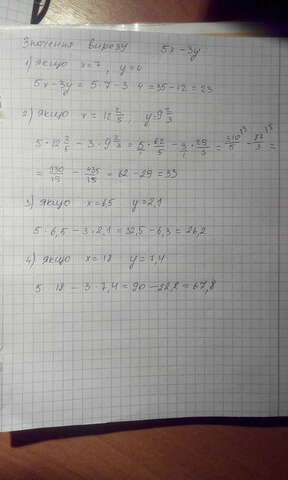 Значення виразу 5x-3y
1) якщо x=7, y=4
5x-3y=5·7-3 4=35-12=23
2) якщо x=12 2/5, y=9 2/3
5·12 2/5-3·9 2/3=5/1·62/5-3/1·29/3=310/5-87/3=
=930/15-435/15=62-29=33
3) якщо x=6,5 y=2,1
5·6,5-3·2,1=32,5-6,3=26,2
4) якщо x=18 y=7,4
5 18-3·7,4=90-22,2=67,8